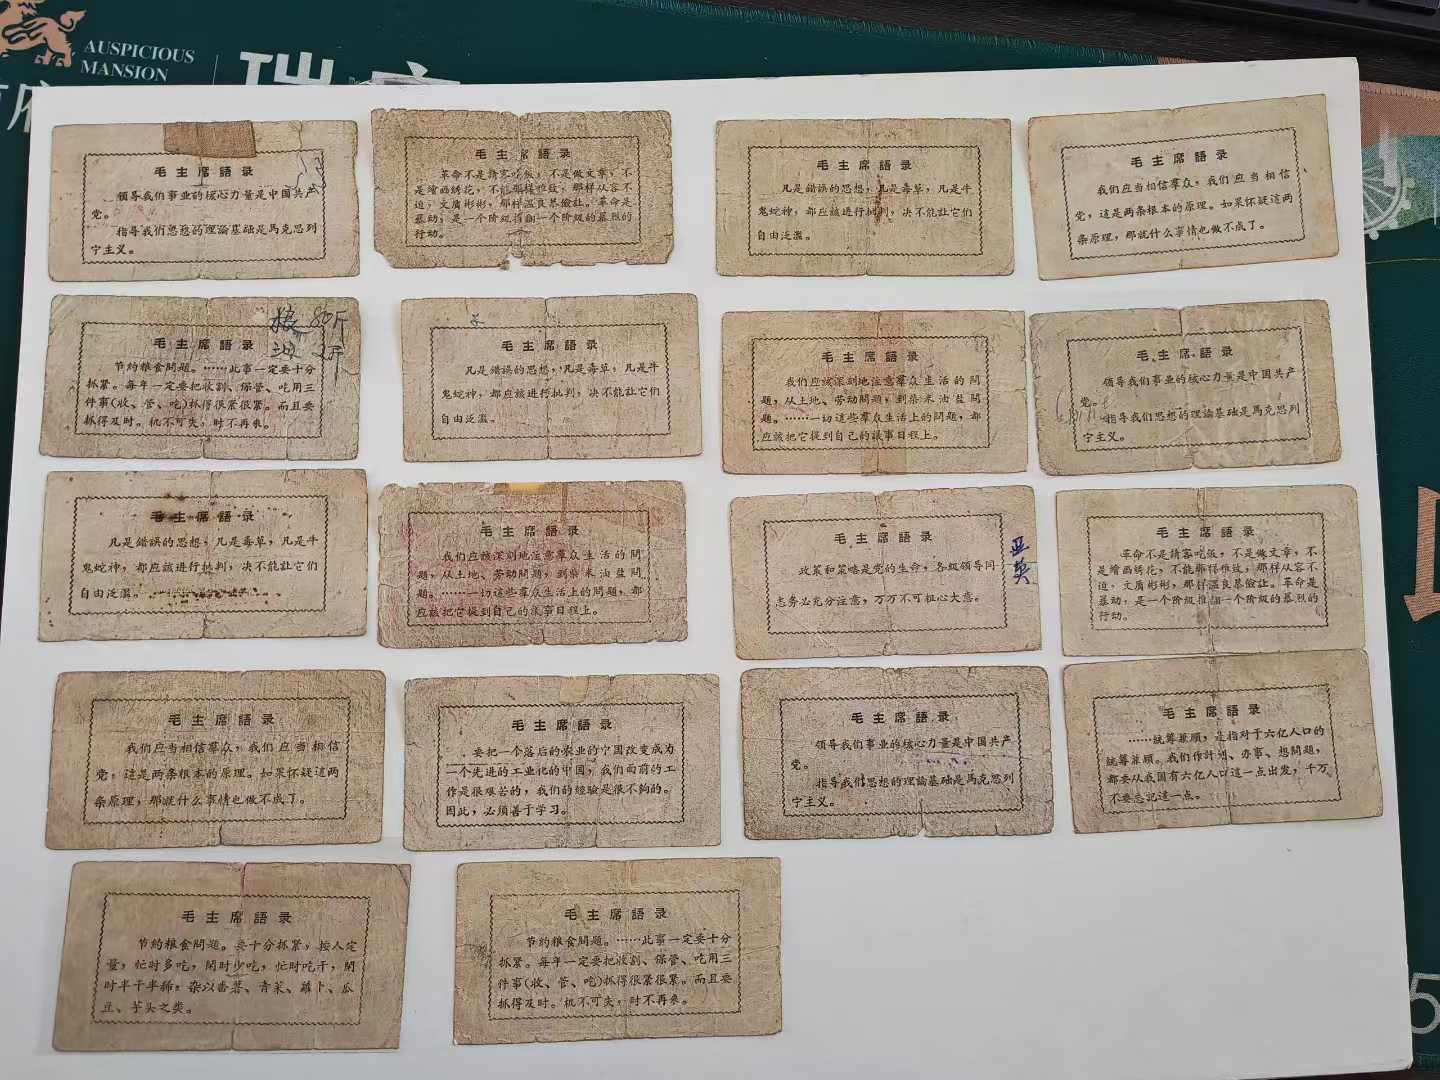 AUSPICIOUS
MANSION
毛主席語录
领导我们事业的核心力量是中国共产
党。
指导我们思想的理論基础是馬克思列
宁主义。
毛主席語录
革命不是請客吃饭，不是做文章，不
是繪画綉花，不能那样雅致，那样从容不
迫，文质彬彬，那样温良恭儉让。革命是
暴动，是一个阶級推翻一个阶級的暴烈的
行动。
毛主席語录
凡是錯誤的思想，凡是毒草，凡是牛
鬼蛇神，都应該进行批判，决不能让它们
自由泛濫。
毛主席語录
我们应当相信羣众，我们应当相信
党，這是两条根本的原理。如果怀疑這两
条原理，那就什么事情也做不成了。
粮80斤
油2斤
毛主席語录
节約粮食問題。……此事一定要十分
抓紧。每年一定要把收割、保管、吃用三
件事(收、管、吃)抓得很紧很紧。而且要
抓得及时。机不可失，时不再来。
毛主席語录
凡是錯誤的思想，凡是毒草，凡是牛
鬼蛇神，都应該进行批判，决不能让它们
自由泛濫。
毛主席語录
我们应該深刻地注意羣众生活的問
題，从土地、劳动問題，到柴米油盐問
題。……一切這些羣众生活上的問題，都
应該把它提到自己的議事日程上。
毛主席語录
领导我们事业的核心力量是中国共产
党。
指导我们思想的理論基础是馬克思列
宁主义。
毛主席語录
凡是錯誤的思想，凡是毒草，凡是牛
鬼蛇神，都应該进行批判，决不能让它们
自由泛濫。
毛主席語录
我们应該深刻地注意羣众生活的問
題，从土地、劳动問題，到柴米油盐問
題。……一切這些羣众生活上的問題，都
应該把它提到自己的議事日程上。
毛主席語录
政策和策略是党的生命，各級领导同
志务必充分注意，万万不可粗心大意。
亚英
毛主席語录
革命不是請客吃饭，不是做文章，不
是繪画綉花，不能那样雅致，那样从容不
迫，文质彬彬，那样温良恭儉让。革命是
暴动，是一个阶級推翻一个阶級的暴烈的
行动。
毛主席語录
我们应当相信羣众，我们应当相信
党，這是两条根本的原理。如果怀疑這两
条原理，那就什么事情也做不成了。
毛主席語录
要把一个落后的农业的中国改变成为
一个先进的工业化的中国，我们面前的工
作是很艰苦的，我们的經驗是很不夠的。
因此，必須善于学习。
毛主席語录
领导我们事业的核心力量是中国共产
党。
指导我们思想的理論基础是馬克思列
宁主义。
毛主席語录
……統筹兼顾，是指对于六亿人口的
統筹兼顾。我们作計划、办事、想問題，
都要从我国有六亿人口這一点出发，千万
不要忘記這一点。
毛主席語录
节約粮食問題。要十分抓紧，按人定
量，忙时多吃，閑时少吃，忙时吃干，閑
时半干半稀，杂以番薯、青菜、蘿卜、瓜
豆、芋头之类。
毛主席語录
节約粮食問題。……此事一定要十分
抓紧。每年一定要把收割、保管、吃用三
件事(收、管、吃)抓得很紧很紧。而且要
抓得及时。机不可失，时不再来。
5